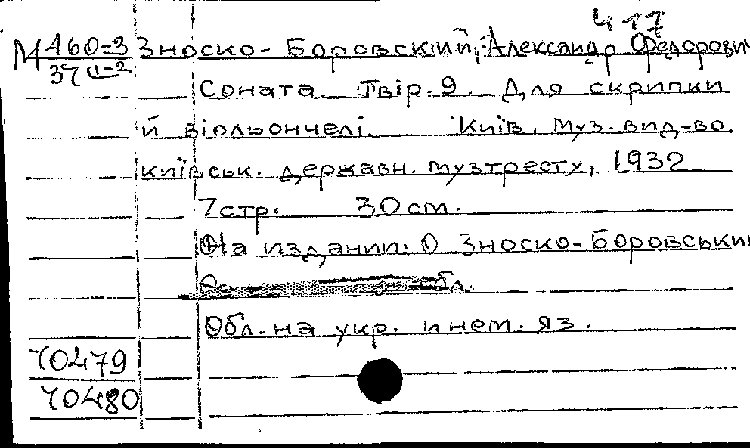 417
М 460-3 Зноско-Боровский, Александр Федорович
37 II-2
Соната. Твір. 9. Для скрипки
й віольончелі. Київ, Муз. вид-во
київськ. державн. музтресту, 1932
7 стр. 30 см.
На издании: О Зноско-Боровський
Обл. на укр. и нем. яз.
70479
70480